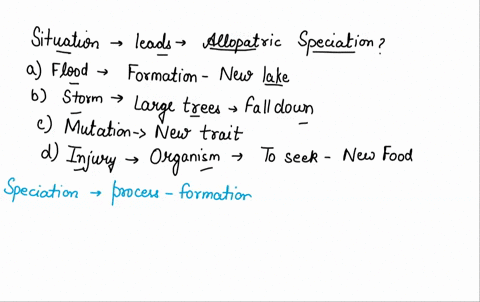 Situation → leads → Allopatric Speciation?
a) Flood → Formation - New lake
b) Storm → Large trees → Fall down
c) Mutation -> New trait
d) Injury → Organism → To seek - New Food
Speciation → process - formation